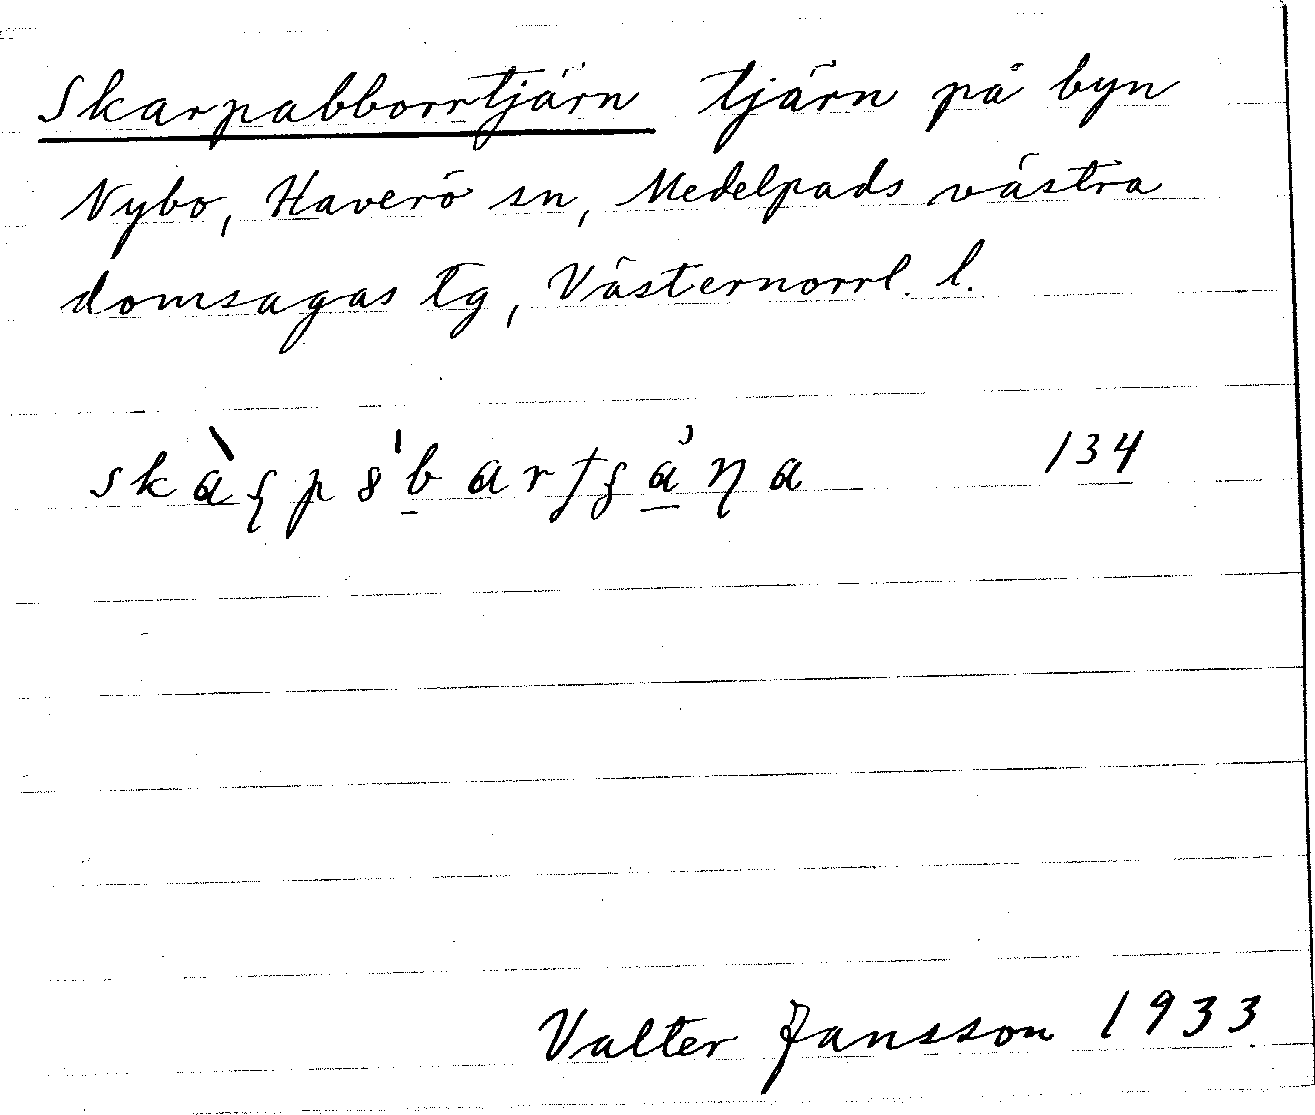 Skarpabborrtjärn tjärn på byn
Nybo, Haverö sn, Medelpads västra
domsagas tg, Västernorrl. l.
134
Valter Jansson 1933.